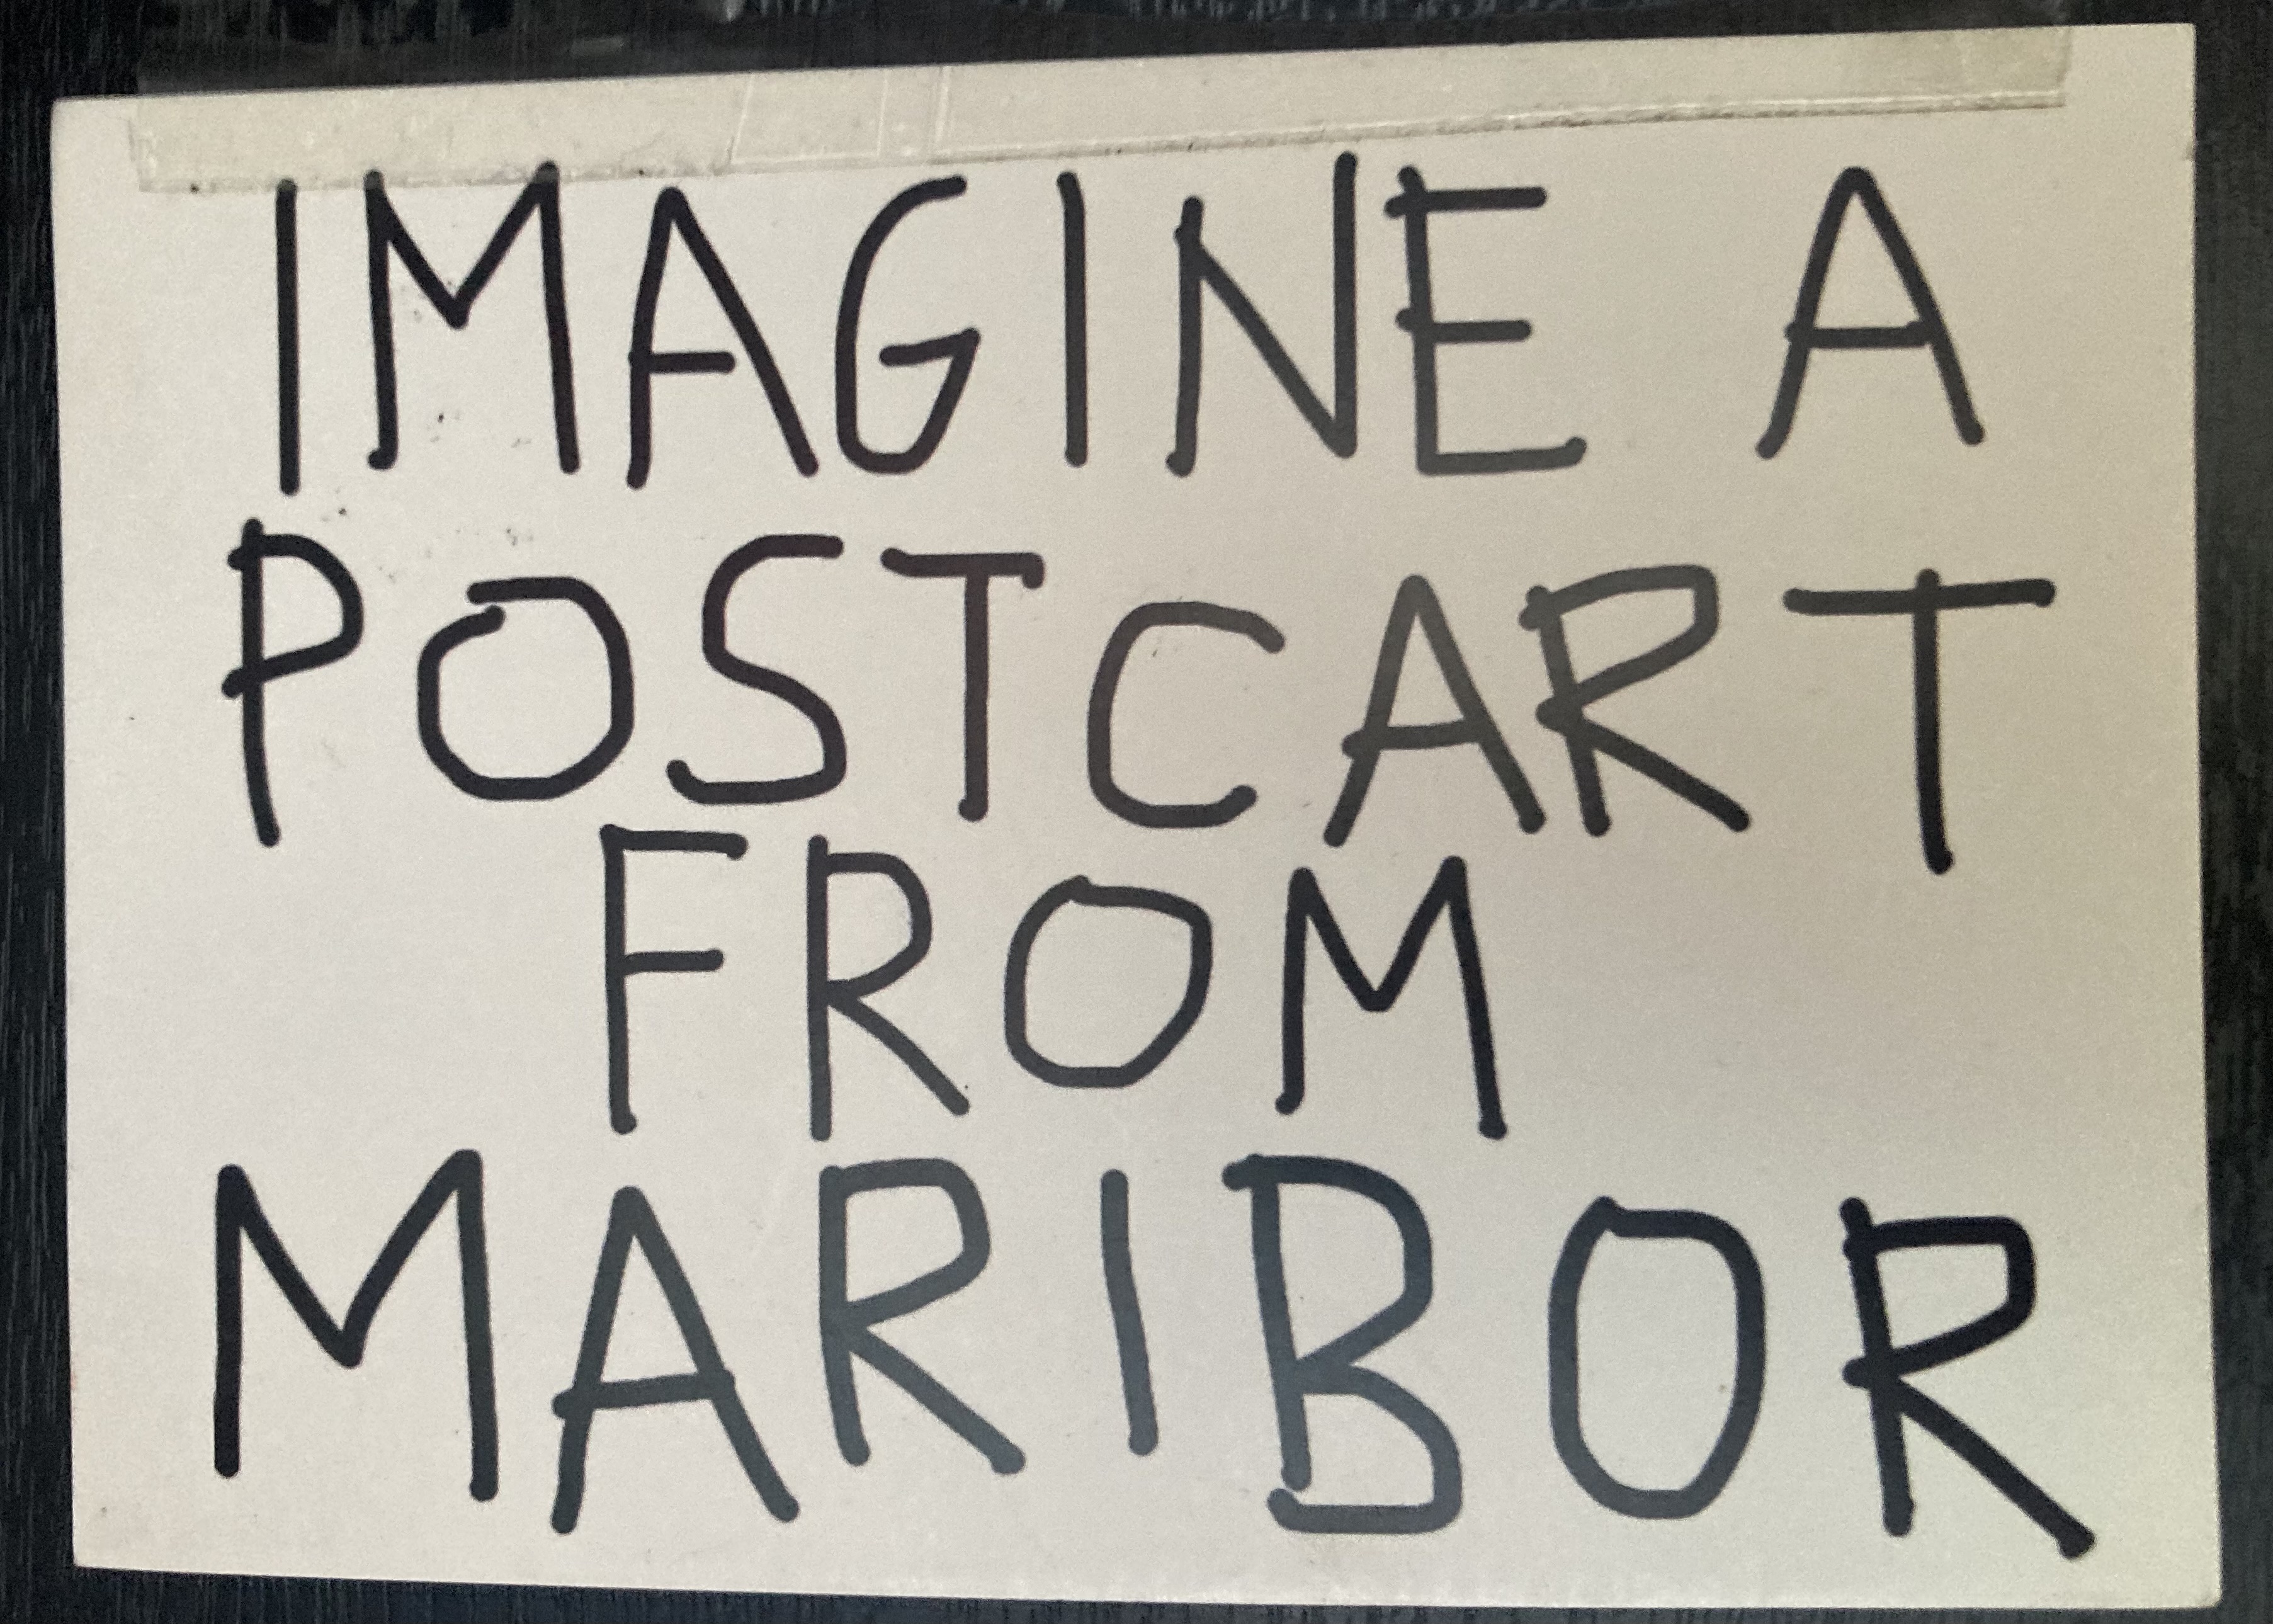 IMAGINE A
POSTCART
FROM
MARIBOR